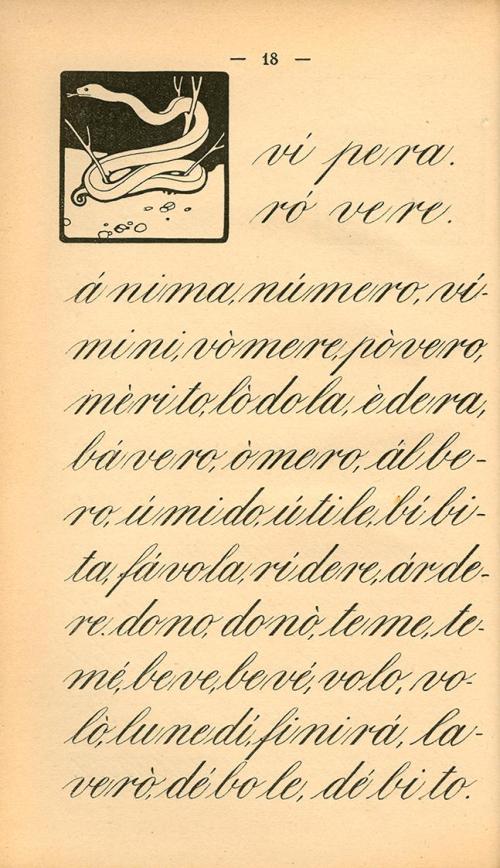 — 18 —
ví pera.
ró vere.
ánima, número, ví-
mini, vòmere, pòvero,
mèrito, lòdola, èdera,
bávero, òmero, álbe-
ro, úmido, útile, bíbi-
ta, fávola, rídere, árde-
re. dono, donò, teme, te-
mé, beve, bevé, volo, vo-
lò, lunedí, finirá, la-
verò, débole, débito.